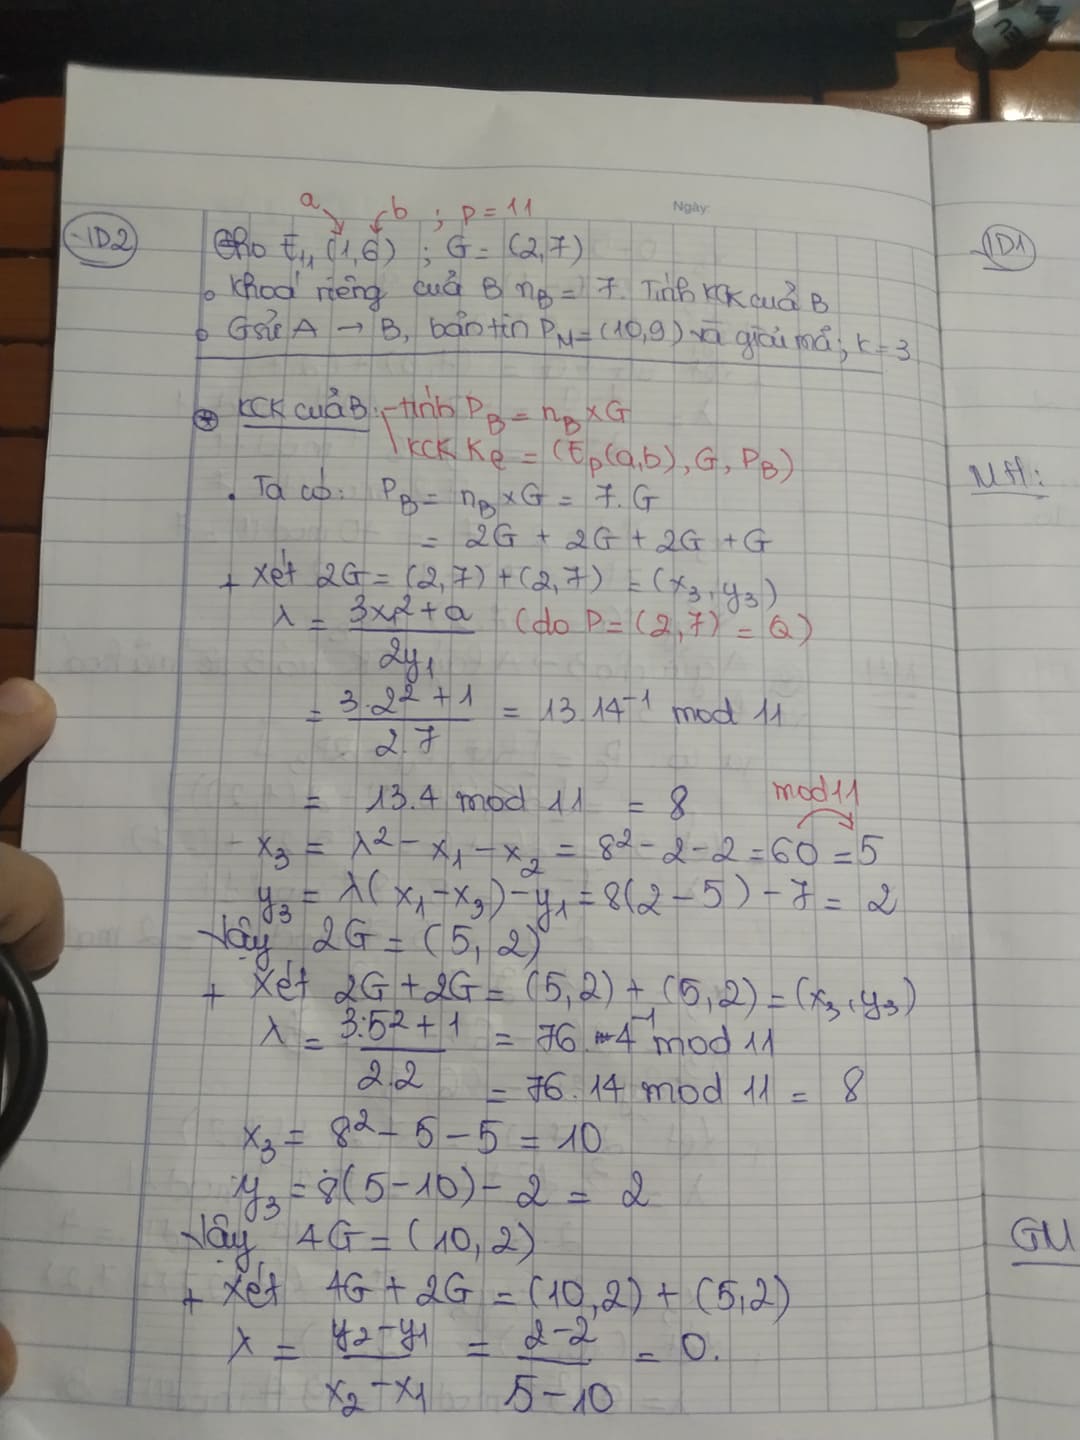 a b ; p = 11
Ngày:
VD2 Cho E₁₁ (1,6) ; G = (2,7)
VD1
• Khoá riêng cuả B n_B = 7. Tính KCK cuả B
• Gsử A → B, bản tin P_M = (10,9) và giải mã; k = 3
⊛ KCK cuả B: tính P_B = n_B × G
KCK Ke = (E_p(a,b), G, P_B)
MH:
• Ta có: P_B = n_B × G = 7.G
= 2G + 2G + 2G + G
+ Xét 2G = (2,7) + (2,7) = (x₃, y₃)
λ = (3x₁² + a)/(2y₁) (do P = (2,7) = Q)
= (3.2² + 1)/(2.7) = 13.14⁻¹ mod 11
= 13.4 mod 11 = 8 mod 11
- x₃ = λ² - x₁ - x₂ = 8² - 2 - 2 = 60 = 5
y₃ = λ(x₁ - x₃) - y₁ = 8(2 - 5) - 7 = 2
Vậy 2G = (5, 2)
+ Xét 2G + 2G = (5,2) + (5,2) = (x₃, y₃)
λ = (3.5² + 1)/(2.2) = 76.4⁻¹ mod 11
= 76.14 mod 11 = 8
x₃ = 8² - 5 - 5 = 10
y₃ = 8(5 - 10) - 2 = 2
Vậy 4G = (10, 2)
GM
+ Xét 4G + 2G = (10,2) + (5,2)
λ = (y₂ - y₁)/(x₂ - x₁) = (2 - 2)/(5 - 10) = 0.